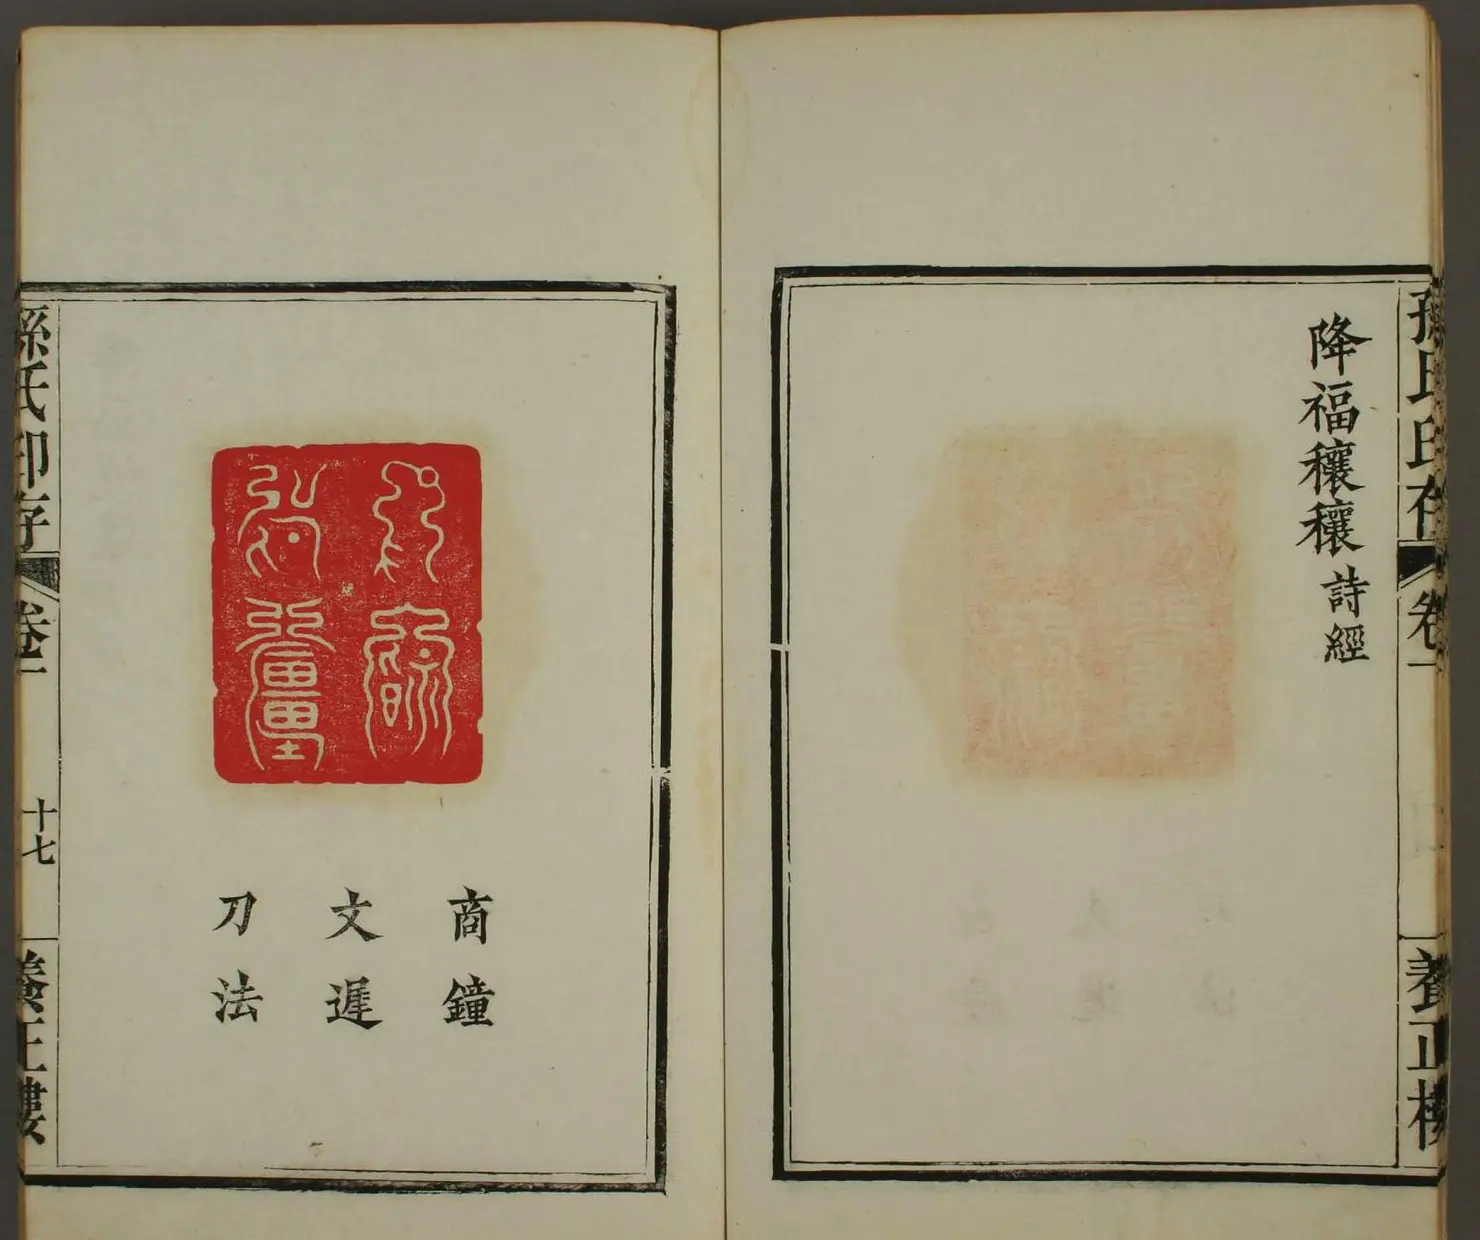 孫氏印存
卷一
養正樓
降福穰穰 詩經
商鐘
文遲
刀法
孫氏印存
卷一
十七
養正樓